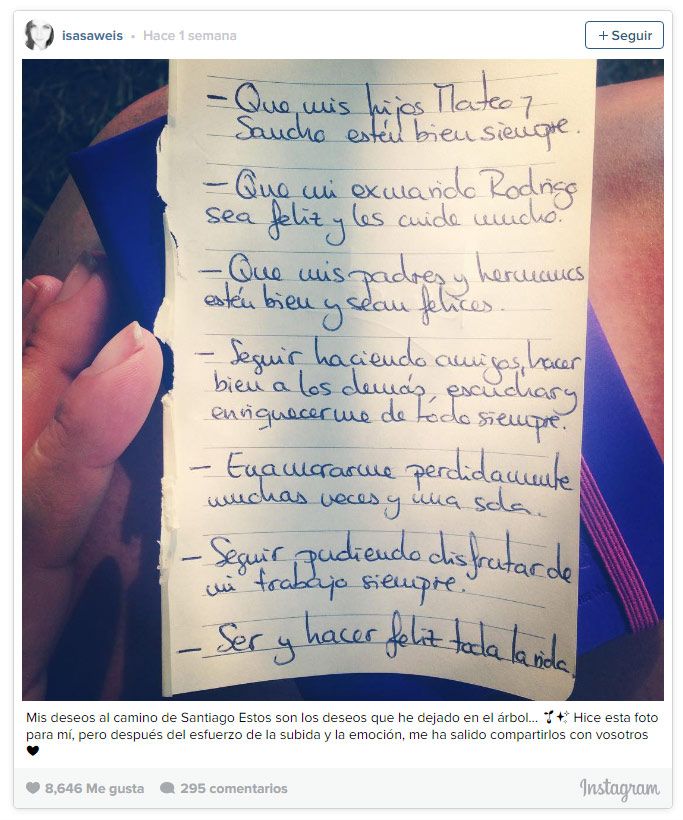 isasaweis • Hace 1 semana
+ Seguir
- Que mis hijos Mateo y
Sancho estén bien siempre.
- Que mi exmarido Rodrigo
sea feliz y les cuide mucho.
- Que mis padres y hermanos
estén bien y sean felices.
- Seguir haciendo amigos, hacer
bien a los demás, escuchar y
enriquecerme de todo siempre.
- Enamorarme perdidamente
muchas veces y una sola.
- Seguir pudiendo disfrutar de
mi trabajo siempre.
- Ser y hacer feliz toda la vida.
Mis deseos al camino de Santiago Estos son los deseos que he dejado en el árbol... 🌱✨ Hice esta foto
para mí, pero después del esfuerzo de la subida y la emoción, me ha salido compartirlos con vosotros
♥
8,646 Me gusta 295 comentarios
Instagram